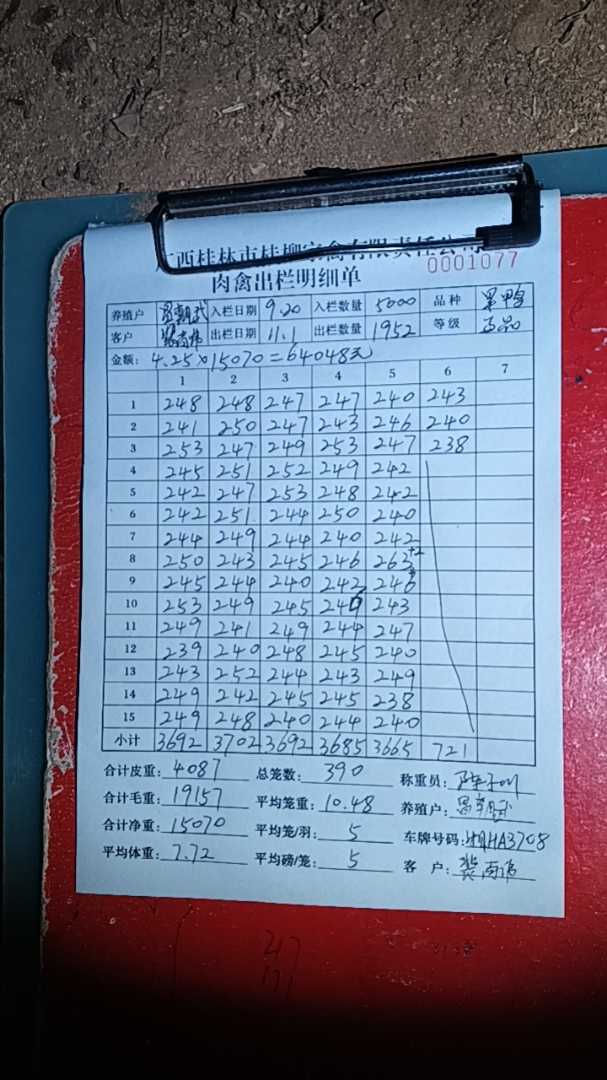 广西桂林市桂柳家禽有限责任公司
0001077
肉禽出栏明细单
养殖户 入栏日期 9.20 入栏数量 5000 品种 黑鸭
客户 出栏日期 11.1 出栏数量 1952 等级 正品
金额: 4.25×15070=64048元
1 2 3 4 5 6 7
1 248 248 247 247 240 243
2 241 250 247 243 246 240
3 253 247 249 253 247 238
4 245 251 252 249 242
5 242 247 253 248 242
6 242 251 244 250 240
7 244 249 244 240 242
8 250 243 245 246 263 +2
9 245 244 240 242 246
10 253 249 245 249 243
11 249 241 249 244 247
12 239 240 248 245 240
13 243 252 244 243 249
14 249 242 245 245 238
15 249 248 240 244 240
小计 3692 3702 3692 3685 3665 721
合计皮重: 4087 总笼数: 390 称重员:
合计毛重: 19157 平均笼重: 10.48 养殖户:
合计净重: 15070 平均笼/羽: 5 车牌号码: 湘HA3708
平均体重: 7.72 平均磅/笼: 5 客户: